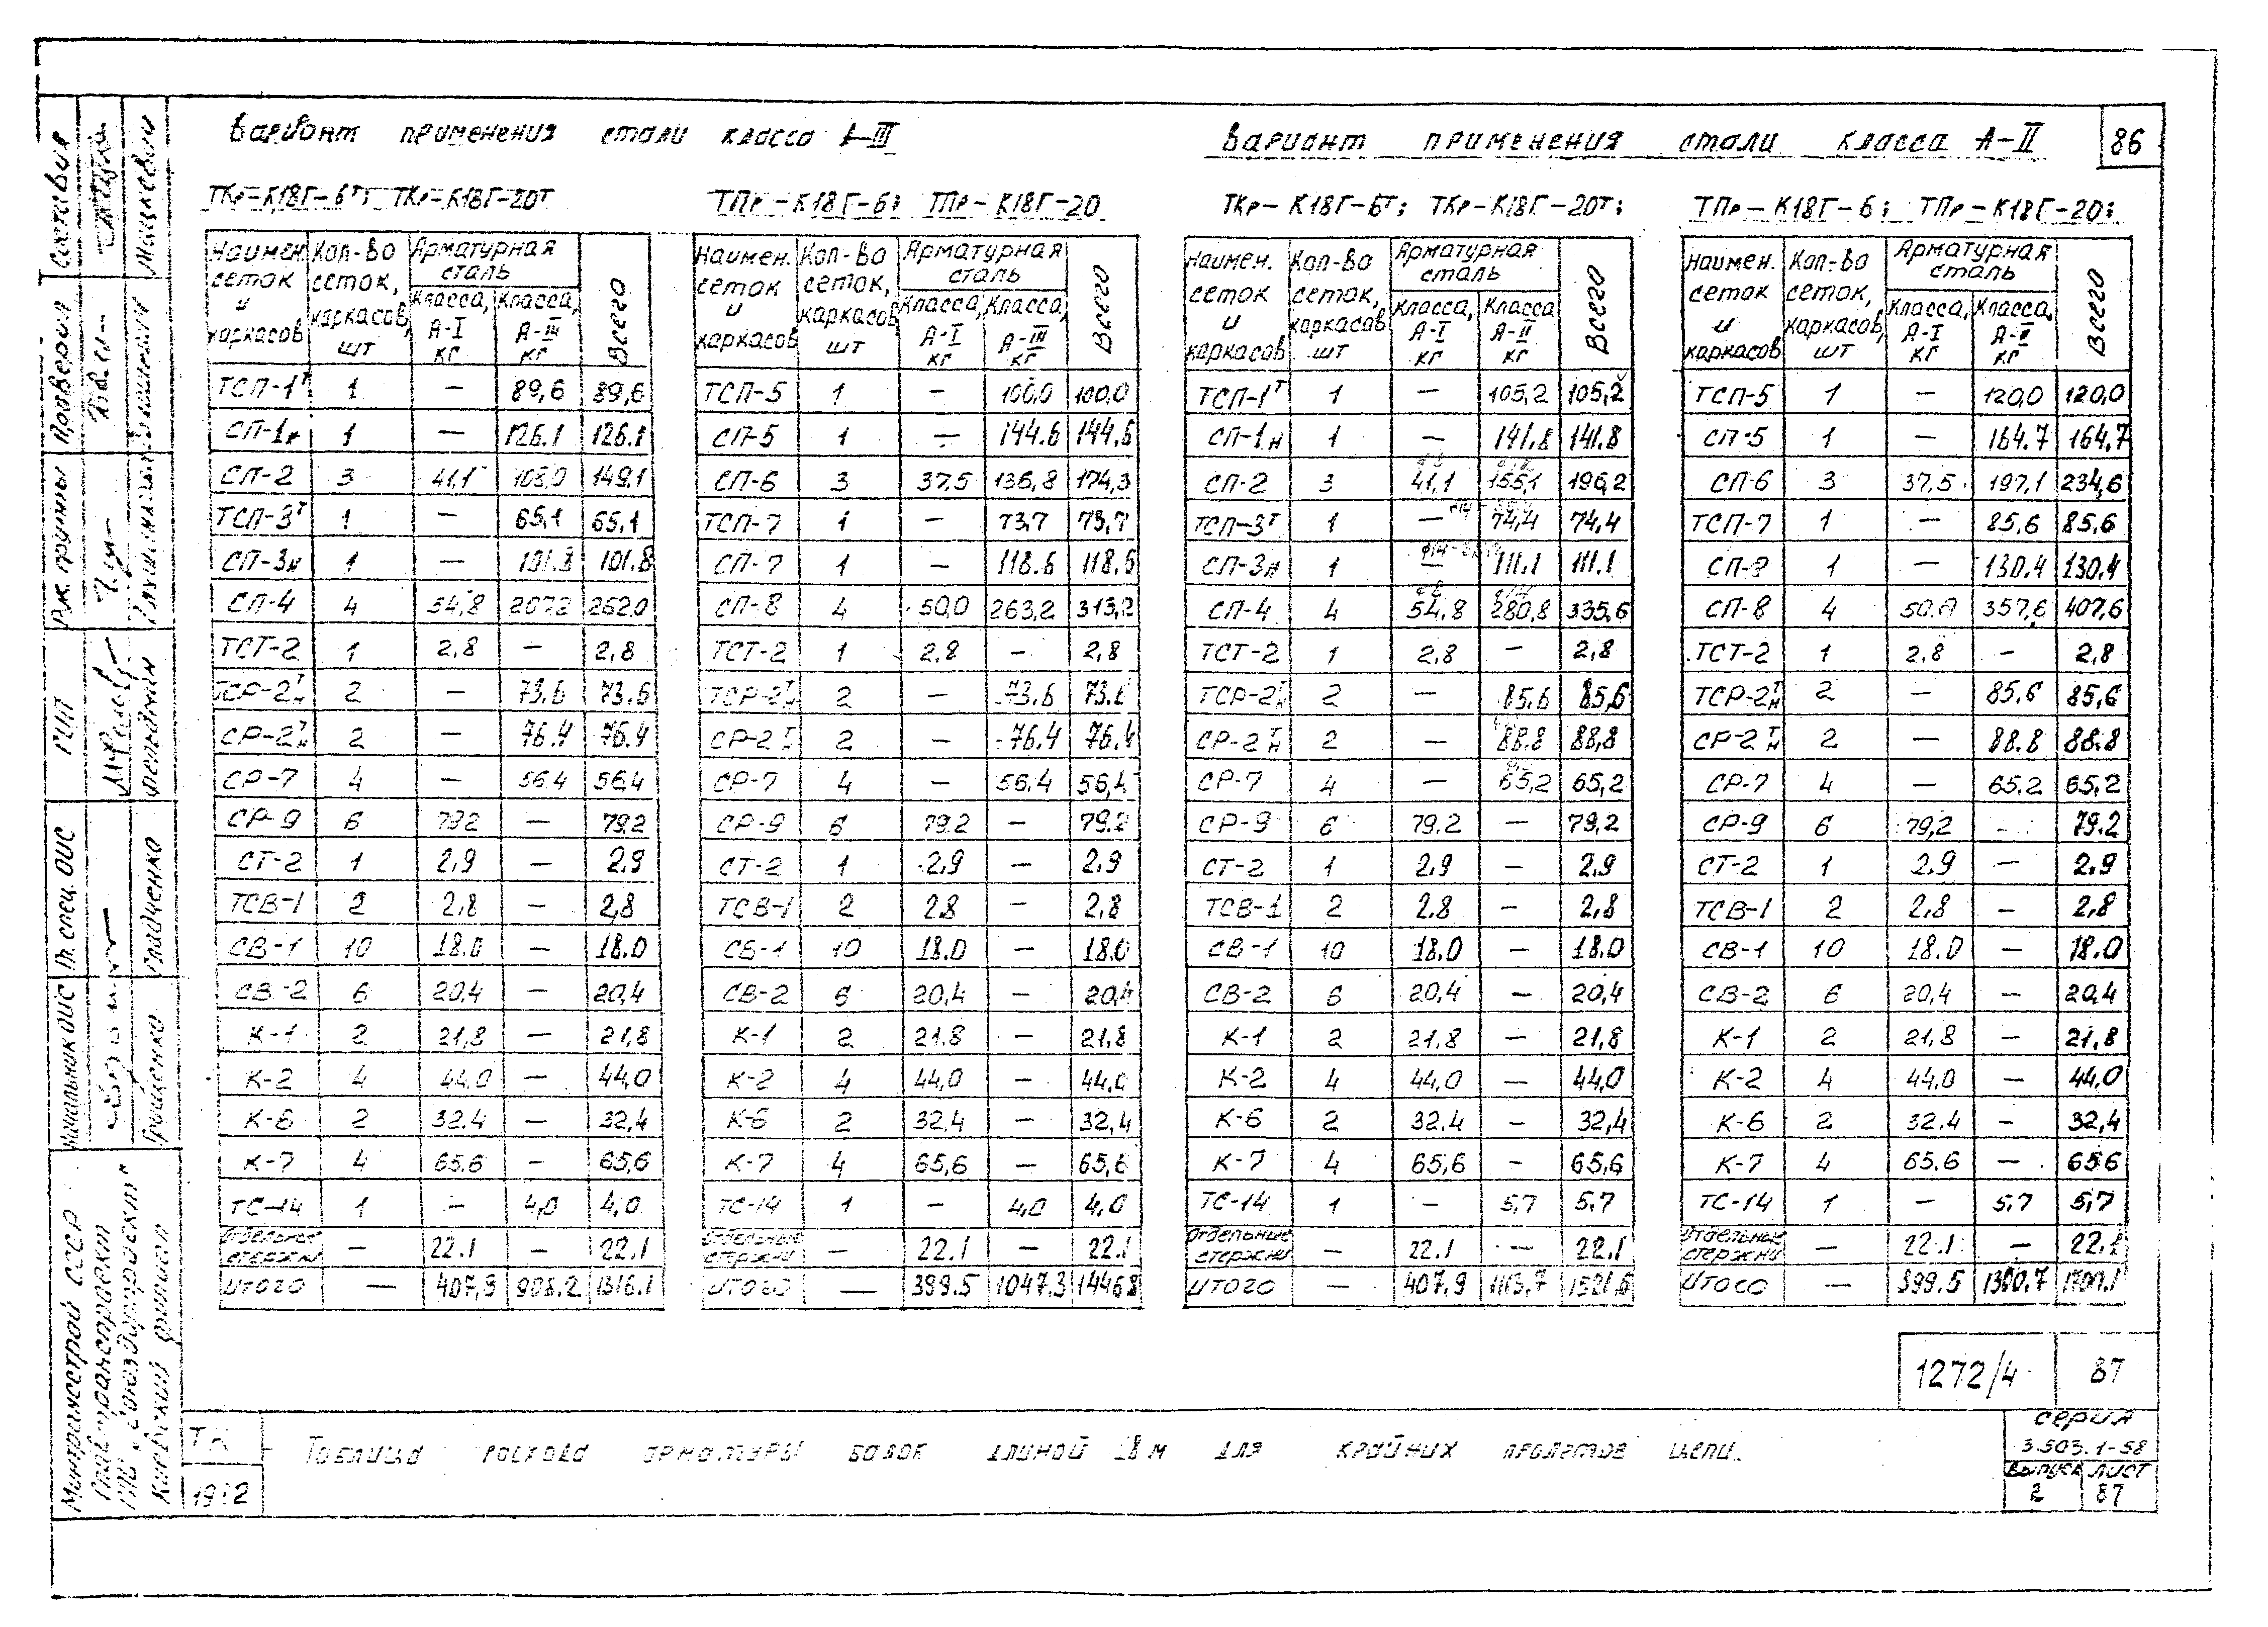 Вариант применения стали класса А-III
Вариант применения стали класса А-II
86
ТКр-К18Г-6т; ТКр-К18Г-20т
Наимен. сеток и каркасов | Кол-во сеток, каркасов, шт | Арматурная сталь | Класса, А-I кг | Класса, А-III кг | Всего
ТСП-1т 1 — 89,6 89,6
СП-1н 1 — 126.1 126.1
СП-2 3 41,1 108,0 149,1
ТСП-3т 1 — 65,1 65,1
СП-3н 1 — 101.8 101.8
СП-4 4 54,8 207,2 262.0
ТСТ-2 1 2,8 — 2,8
ТСР-2тн 2 — 73.6 73.6
СР-2тн 2 — 76.4 76.4
СР-7 4 — 56.4 56,4
СР-9 6 79.2 — 79.2
СТ-2 1 2,9 — 2,9
ТСВ-1 2 2,8 — 2,8
СВ-1 10 18.0 — 18.0
СВ-2 6 20,4 — 20,4
К-1 2 21,8 — 21,8
К-2 4 44.0 — 44,0
К-6 2 32.4 — 32,4
К-7 4 65.6 — 65,6
ТС-14 1 — 4,0 4,0
Отдельные стержни — 22.1 — 22.1
Итого — 407,9 908.2 1316.1
ТПр-К18Г-6; ТПр-К18Г-20
Наимен. сеток и каркасов | Кол-во сеток, каркасов шт | Арматурная сталь | Класса, А-I кг | Класса, А-III кг | Всего
ТСП-5 1 — 100,0 100.0
СП-5 1 — 144.6 144,6
СП-6 3 37.5 136,8 174,3
ТСП-7 1 — 73.7 73,7
СП-7 1 — 118.6 118,6
СП-8 4 50,0 263,2 313,2
ТСТ-2 1 2,8 — 2,8
ТСР-2тн 2 — 73.6 73.6
СР-2тн 2 — 76.4 76.4
СР-7 4 — 56.4 56,4
СР-9 6 79.2 — 79.2
СТ-2 1 2,9 — 2.9
ТСВ-1 2 2.8 — 2,8
СВ-1 10 18.0 — 18.0
СВ-2 6 20,4 — 20,4
К-1 2 21.8 — 21,8
К-2 4 44,0 — 44,0
К-6 2 32.4 — 32,4
К-7 4 65,6 — 65,6
ТС-14 1 — 4,0 4,0
Отдельные стержни — 22.1 — 22.1
Итого — 399.5 1047.3 1446.8
ТКр-К18Г-6т; ТКр-К18Г-20т;
Наимен. сеток и каркасов | Кол-во сеток, каркасов шт | Арматурная сталь | Класса, А-I кг | Класса А-II кг | Всего
ТСП-1т 1 — 105,2 105,2
СП-1н 1 — 141.8 141.8
СП-2 3 41,1 155,1 196,2
ТСП-3т 1 — 74,4 74,4
СП-3н 1 — 111.1 111.1
СП-4 4 54,8 280,8 335,6
ТСТ-2 1 2,8 — 2,8
ТСР-2тн 2 — 85.6 85,6
СР-2тн 2 — 88.8 88,8
СР-7 4 — 65,2 65,2
СР-9 6 79.2 — 79,2
СТ-2 1 2,9 — 2,9
ТСВ-1 2 2.8 — 2,8
СВ-1 10 18.0 — 18.0
СВ-2 6 20,4 — 20,4
К-1 2 21,8 — 21,8
К-2 4 44,0 — 44,0
К-6 2 32.4 — 32,4
К-7 4 65,6 — 65,6
ТС-14 1 — 5,7 5,7
Отдельные стержни — 22.1 — 22.1
Итого — 407,9 1113,7 1521,6
ТПр-К18Г-6; ТПр-К18Г-20;
Наимен. сеток и каркасов | Кол-во сеток, каркасов, шт | Арматурная сталь | Класса, А-I кг | Класса, А-II кг | Всего
ТСП-5 1 — 120,0 120,0
СП-5 1 — 164.7 164,7
СП-6 3 37,5 197,1 234,6
ТСП-7 1 — 85,6 85,6
1 — 130.4 130,4
СП-8 4 50,0 357,6 407,6
ТСТ-2 1 2,8 — 2,8
ТСР-2тн 2 — 85,6 85,6
СР-2тн 2 — 88.8 88.8
СР-7 4 — 65.2 65,2
СР-9 6 79,2 — 79.2
СТ-2 1 2.9 — 2.9
ТСВ-1 2 2,8 — 2,8
СВ-1 10 18.0 — 18.0
СВ-2 6 20,4 — 20,4
К-1 2 21,8 — 21,8
К-2 4 44,0 — 44,0
К-6 2 32.4 — 32,4
К-7 4 65.6 — 65,6
ТС-14 1 — 5,7 5,7
Отдельные стержни — 22.1 — 22,1
399.5 1300.7
1272/4 87
ТК
Таблица расхода арматуры балок длиной 18 м для крайних пролетов цепи.
серия
3.503.1-58
выпуск лист
2 87
Составил Мацкевич
Проверил
Рук. группы
ГИП Фельдман
Гл. спец. ОИС Гладченко
Начальник ОИС Гриценко
Минтрансстрой СССР
Главтранспроект
ГПИ „Союздорпроект"
Киевский филиал